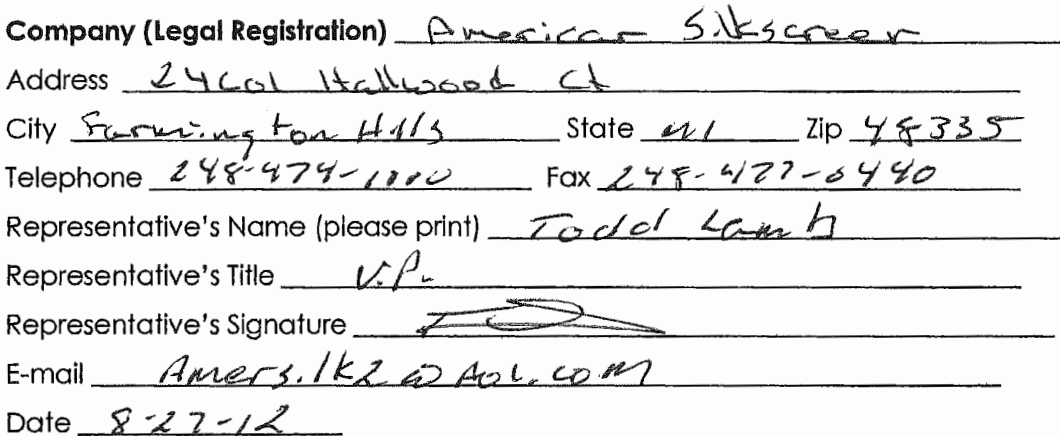 Company (Legal Registration) American Silkscreen
Address 24601 Hallwood Ct
City Farmington Hills State MI Zip 48335
Telephone 248-474-1000 Fax 248-477-0440
Representative's Name (please print) Todd Lamb
Representative's Title V.P.
Representative's Signature
E-mail Amersilk2@AOL.com
Date 8-27-12